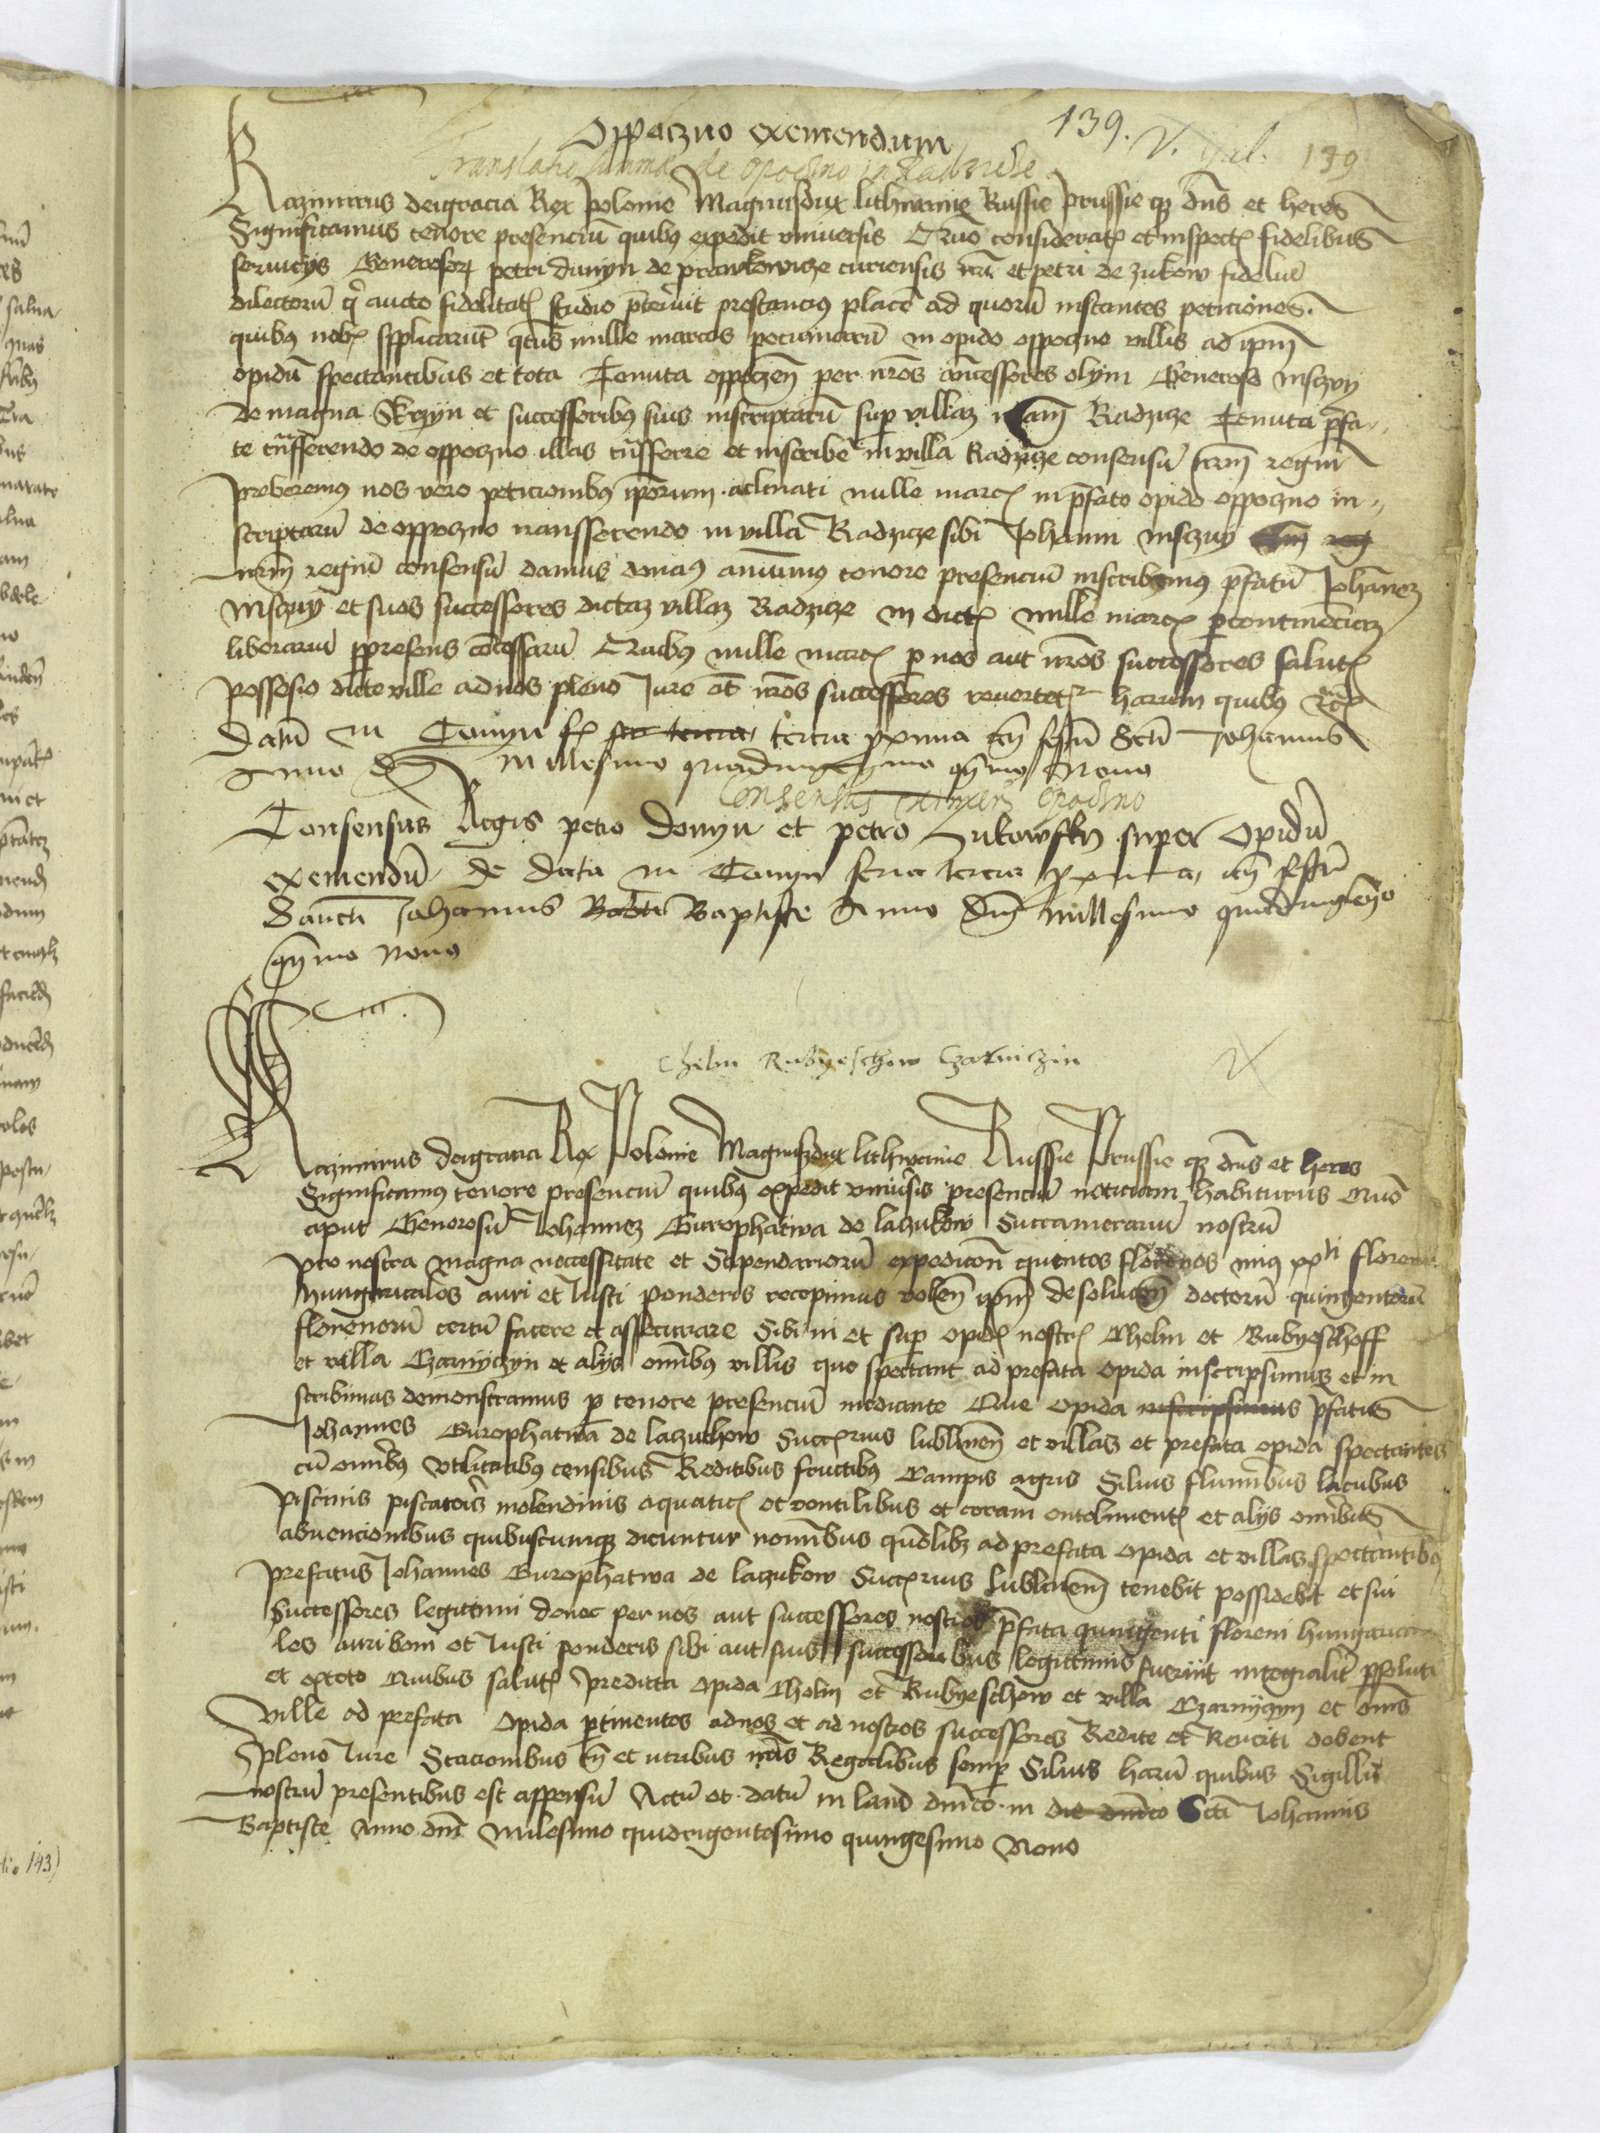 Oppaczno exemendum
139. V. Gul. 139
Translatio summa de Opoczno in Radzicze
Kazimirus deigracia Rex Polonie Magnusdux lithwanie Russie Prussie q3 dns et heres
Significamus tenore presenciu quibus expedit vniuersis Quo consideratis et inspectis fidelibus
seruicys Generosor petri dunyn de prawkowicze curiensis nri et petri de zukow fideliu
dilectoru q aucto fidelitatis studio prestancius place ad quoru instantes peticiones.
quibus nobis supplicarut qtus mille marcas pecuniaru in opido oppoczno villis ad ipm
opidu spectantibus et tota Tenuta oppoczen per nros ancessores olym Generoso msczug
de magna Skrzyn et successoribus suis inscriptaru sup villaz Radzicze Tenuta prefa
te transferendo de oppoczno illas transferre et inscribe in villa Radzicze consensu nrm regiu
preberemus nos vero peticionibus ipsorum aclinati mille marcis in pfato opido oppoczno in
scriptaru de oppoczno transferendo in villa Radzicze sibi Johanni msczug
nrm regiu consensu damus donamus tenore presenciu inscribimus pfatu Johanez
Msczug et suos successores dictaz villaz Radzicze in dictis mille marcis
Quibus mille marcis p nos aut nros successores salutis
possessio dicte ville ad nos pleno Jure et nros successores reuertetur harum quibus
Datu in Conyn tertia proxima an festu Scti Johannis
Anno Dni Millesimo quadringentesimo qnmo Nono
Consensus eximendi Opoczno
Consensus Regis petro Donyn et petro Zukowsky super Opidu
exemendu de Data in Conyn feria tercia proxima an festu
Sancti Johannis Baptiste Anno Dni Millesimo quadringentesimo
qnmo Nono
Chelm Rubyeschow Czarniczin
Kazimirus deigracia Rex Polonie Magnusdux lithwanie Russie Prussie q3 dns et heres
Significamus tenore presenciu quibus expedit vniuersis presenciu noticiam habituris Quo
aput Generosu Johannez Gurophatwa de laczukow Succamerariu nostru
pro nostra magna necessitate et Stipendarioru expedicon florenos
hungaricales auri et Justi ponderis recepimus volen ipm de solucon doctoru quingentoru
florenoru certu facere et assecurare Sibi in et sup opidis nostris Chelm et Rubyeschoff
et villa Czarnyczyn et alys omibus villis que spectant ad prefata opida inscripsimus et in
scribimus demonstramus p tenore presenciu mediante Que opida inscripsimus pfatus
Johannes Gurophatwa de laczuchow Succrius lublinen et villas et prefata opida spectantes
cu omibus vtilitatibus censibus Reditibus fructibus Campis agris Siluis fluminibus lacubus
piscinis piscatoris molendinis aquaticis et ventilibus et eciam emolumentis et alys omibus
abuencionibus quibuscumq3 dicuntur nominibus quolibz ad prefata opida et villas spectantibus
prefatus Johannes Gurophatwa de laczukow Succrius lublinen tenebit possidebit et sui
Successores legittimi donec per nos aut successores nostros pfata quingenti floreni hungarica
les auri boni et Justi ponderis sibi aut suis successoribus legittimis fuerint integraliter psoluti
et extoto Quibus salutis predicta opida Cholm et Rubyeschow et villa Czarnyczyn et omes
ville ad prefata opida ptinentes ad nos et ad nostros successores Redire et Reuerti debent
pleno Jure Stacionibus tn et iuribus nris Regalibus semp Saluis haru quibus Sigillu
nostru presentibus est appensu Actu et datu in die dnico Scti Johannis
Baptiste Anno dni Milesimo quidrigentesimo quingesimo Nono